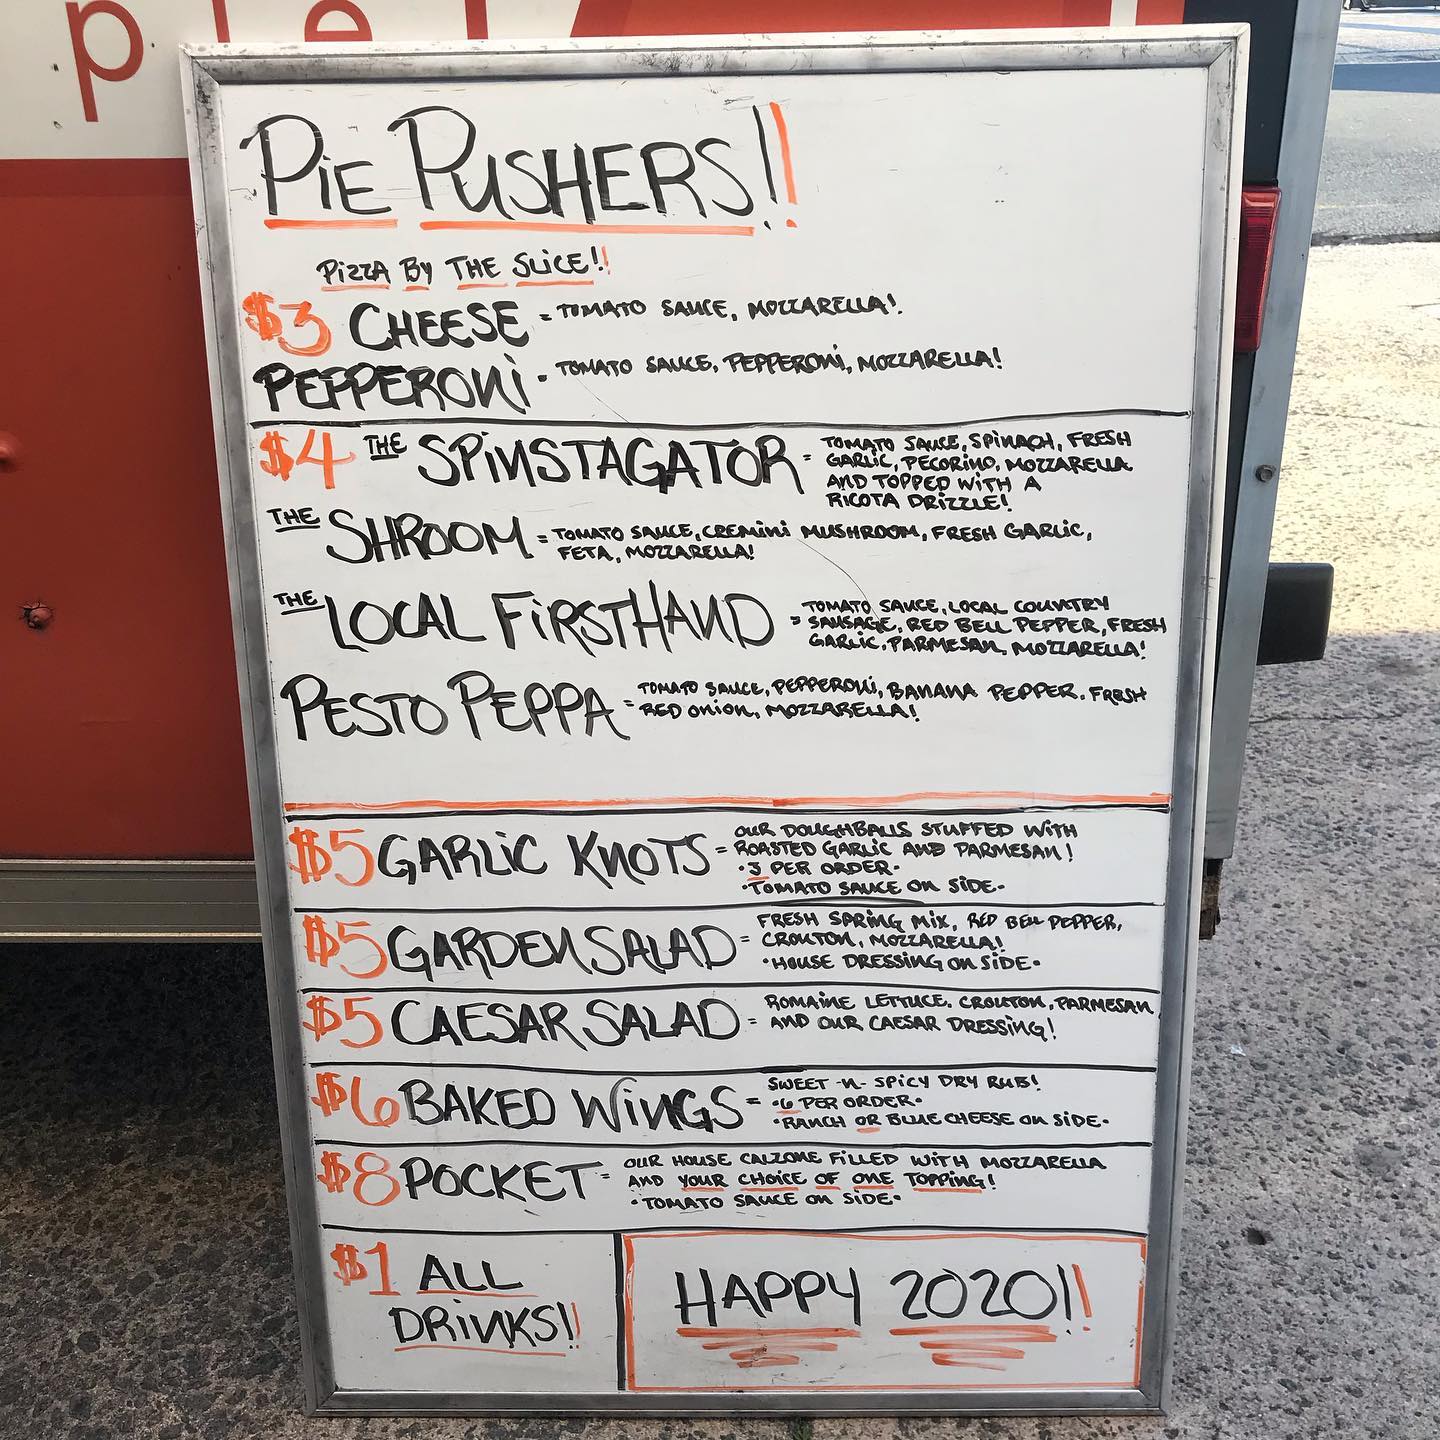 pie
PiE PUSHERS!!
PiZZA By THE SLiCE!!
$3 CHEESE = TOMATO SAUCE, MOZZARELLA!
PEPPERONi - TOMATO SAUCE, PEPPERONi, MOZZARELLA!
$4 THE SPiNSTAGATOR = TOMATO SAUCE, SPiNACH, FRESH
GARLiC, PECORiNO, MOZZARELLA
AND TOPPED WiTH A
RiCOTA DRiZZLE!
THE SHROOM = TOMATO SAUCE, CREMiNi MUSHROOM, FRESH GARLiC,
FETA, MOZZARELLA!
THE LOCAL FiRSTHAND = TOMATO SAUCE, LOCAL COUNTRY
SAUSAGE, RED BELL PEPPER, FRESH
GARLiC, PARMESAN, MOZZARELLA!
PESTO PEPPA = TOMATO SAUCE, PEPPERONi, BANANA PEPPER, FRESH
RED ONiON, MOZZARELLA!
$5 GARLiC KNOTS = OUR DOUGHBALLS STUFFED WiTH
ROASTED GARLiC AND PARMESAN!
• 3 PER ORDER •
• TOMATO SAUCE ON SiDE •
$5 GARDEN SALAD = FRESH SPRiNG MiX, RED BELL PEPPER,
CROUTON, MOZZARELLA!
• HOUSE DRESSiNG ON SiDE •
$5 CAESAR SALAD = ROMAiNE LETTUCE, CROUTON, PARMESAN
AND OUR CAESAR DRESSiNG!
$6 BAKED WiNGS = SWEET -N- SPiCY DRY RUB!
• 6 PER ORDER •
• RANCH OR BLUE CHEESE ON SiDE •
$8 POCKET = OUR HOUSE CALZONE FiLLED WiTH MOZZARELLA
AND YOUR CHOiCE OF ONE TOPPiNG!
• TOMATO SAUCE ON SiDE •
$1 ALL
DRiNKS!!
HAPPY 2020!!